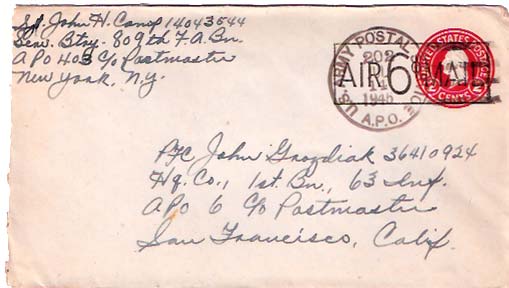 Sgt. John H. Camp 14043544
Serv. Btry. 809th F.A. Bn.
APO 403 c/o Postmaster
New York, N.Y.
U.S. ARMY POSTAL SERVICE A.P.O.
202
11
1945
AIR 6 MAIL
UNITED STATES POSTAGE
2 CENTS 2
Pfc John Grozdiak 36410924
Hq. Co., 1st. Bn., 63 Inf.
APO 6 c/o Postmaster
San Francisco, Calif.